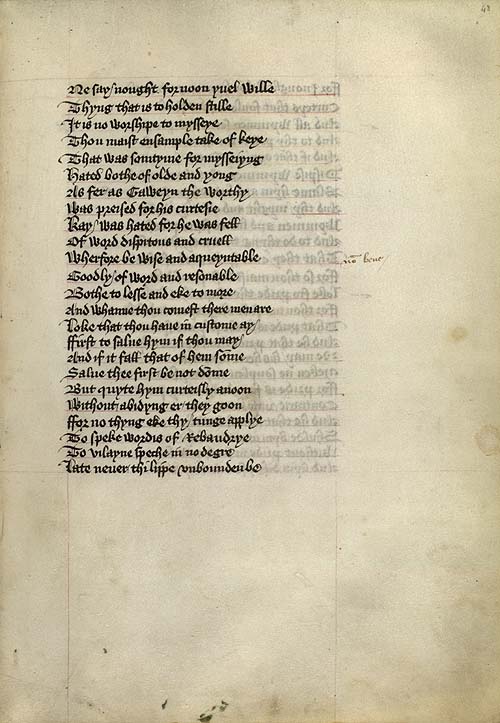 48
Ne say nought for noon yuel wille
Thyng that is to holden stille
It is no worshipe to mysseye
Thou maist ensample take of keye
That was somtyme for mysseiyng
Hated bothe of olde and yong
As fer as Gaweyn the worthy
Was preised for his curtesie
Kay was hated for he was fell
Of word dispitous and cruell
Wherfore be wise and aqueyntable
Goodly of word and resonable
Bothe to lesse and eke to more
And whanne thou comest there men are
Loke that thou haue in custome ay
ffirst to salue hym if thou may
And if it fall that of hem somme
Salue thee first be not domme
But quyte hym curteisly anoon
Without abidyng er they goon
ffor no thyng eke thy tunge applye
To speke wordis of Rebaudrye
To vilayne speche in no degre
Late neuer thi lippe vnbounden be